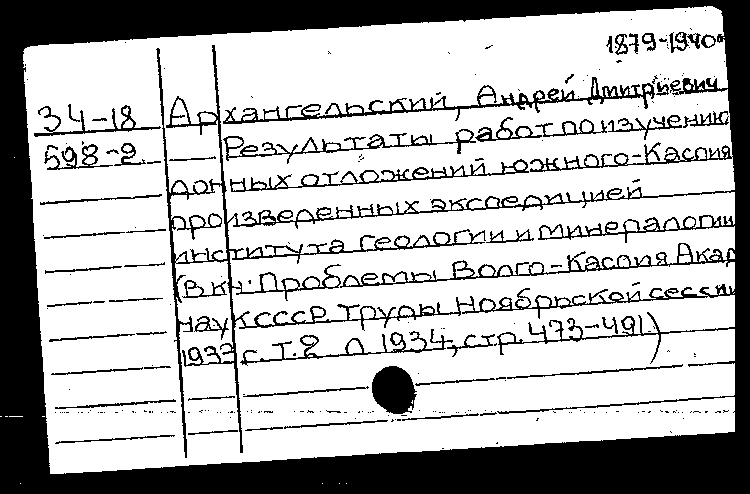 1879-1940
34-18 Архангельский, Андрей Дмитриевич
598-2. Результаты работ по изучению
донных отложений южного-Каспия
произведенных экспедицией
института геологии и минералогии
(В кн: Проблемы Волго-Каспия Акад
наук СССР. Труды Ноябрьской сессии
1933 г. Т. 2 Л 1934, стр. 473-491.)